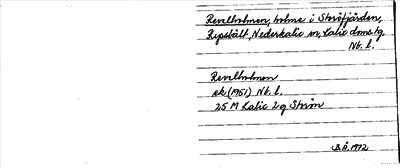 Revelholmen, holme i Storöfjärden,
Rysshält, Nederkalix sn, Kalix dms. tg,
Nt. l.
Revelholmen
ek (1951) Nt. l.
25 M Kalix 2 g Storön
B.Å. 1972